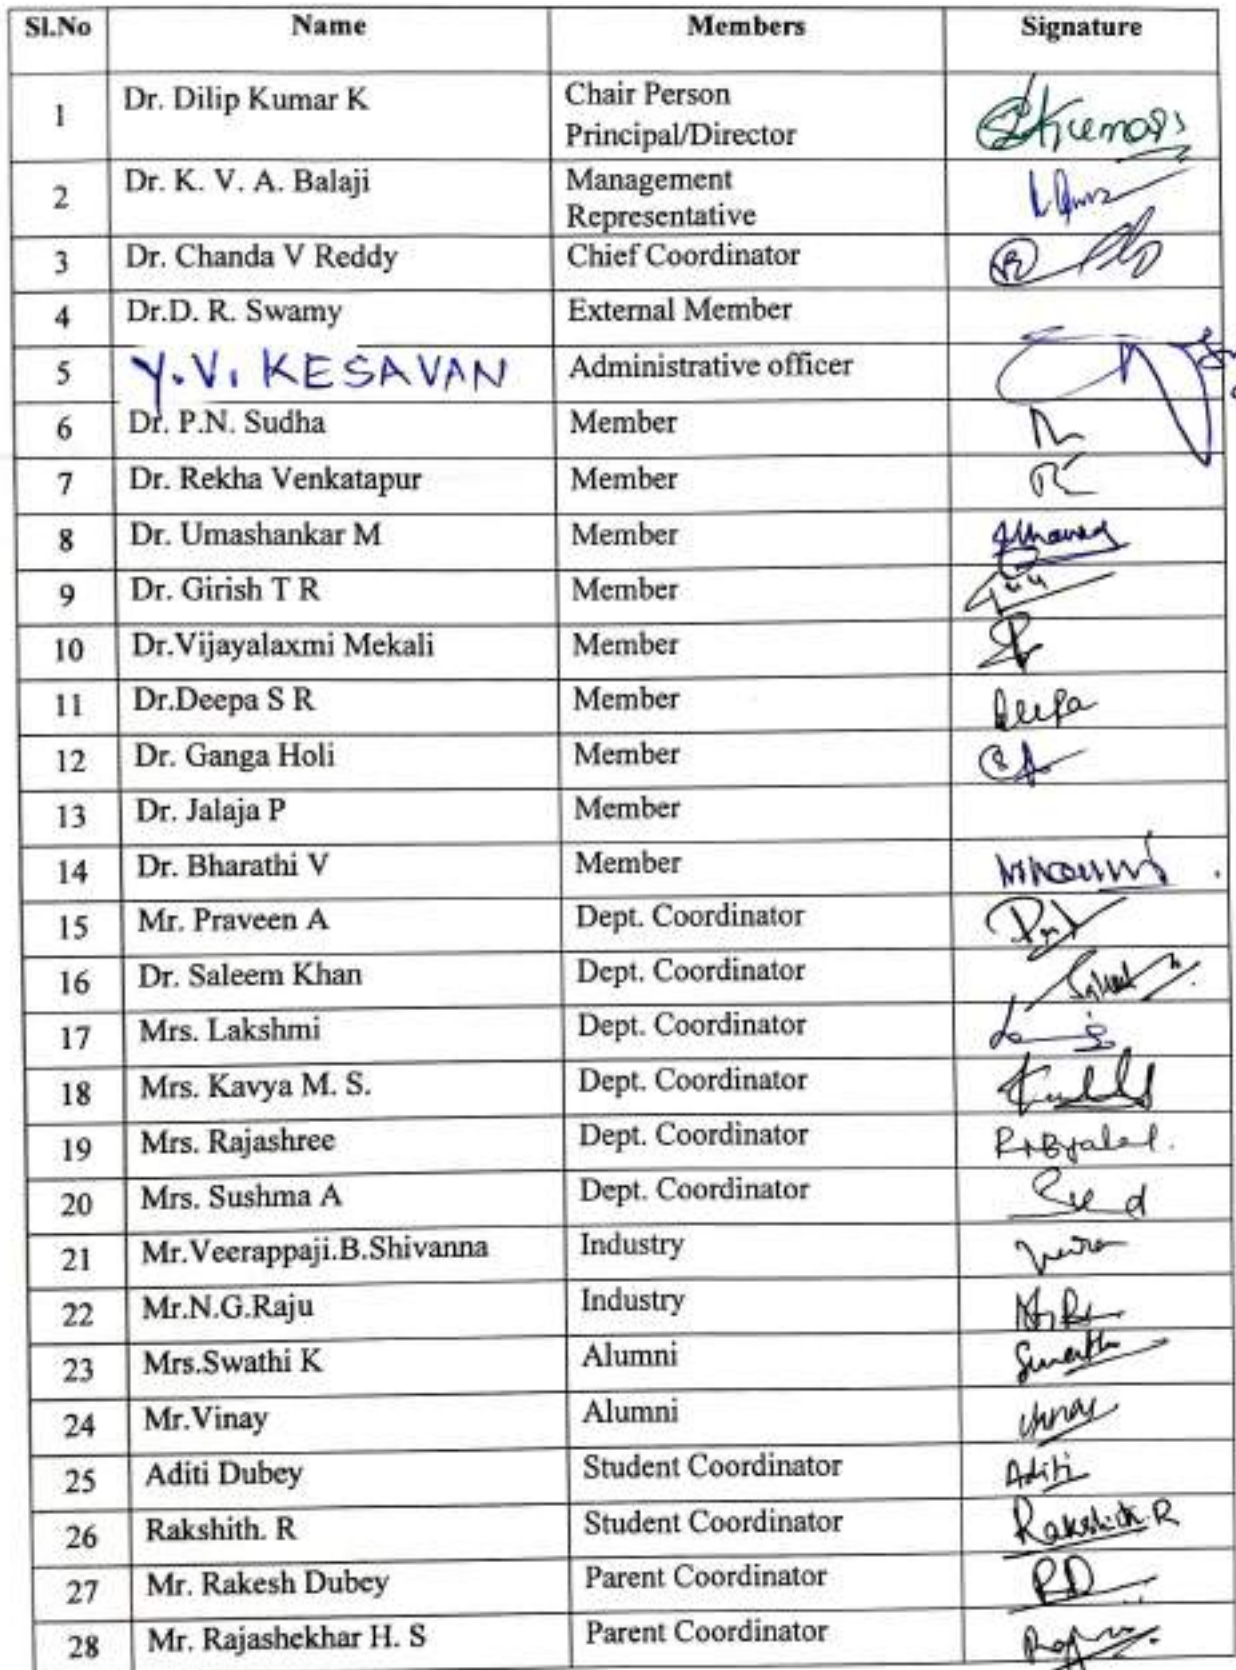 Sl.No Name Members Signature
1 Dr. Dilip Kumar K Chair Person
Principal/Director
2 Dr. K. V. A. Balaji Management
Representative
3 Dr. Chanda V Reddy Chief Coordinator
4 Dr.D. R. Swamy External Member
5 Y.V. KESAVAN Administrative officer
6 Dr. P.N. Sudha Member
7 Dr. Rekha Venkatapur Member
8 Dr. Umashankar M Member
9 Dr. Girish T R Member
10 Dr.Vijayalaxmi Mekali Member
11 Dr.Deepa S R Member Deepa
12 Dr. Ganga Holi Member
13 Dr. Jalaja P Member
14 Dr. Bharathi V Member
15 Mr. Praveen A Dept. Coordinator
16 Dr. Saleem Khan Dept. Coordinator
17 Mrs. Lakshmi Dept. Coordinator
18 Mrs. Kavya M. S. Dept. Coordinator
19 Mrs. Rajashree Dept. Coordinator
20 Mrs. Sushma A Dept. Coordinator
21 Mr.Veerappaji.B.Shivanna Industry
22 Mr.N.G.Raju Industry
23 Mrs.Swathi K Alumni
24 Mr.Vinay Alumni Vinay
25 Aditi Dubey Student Coordinator Aditi
26 Rakshith. R Student Coordinator Rakshith.R
27 Mr. Rakesh Dubey Parent Coordinator RD
28 Mr. Rajashekhar H. S Parent Coordinator